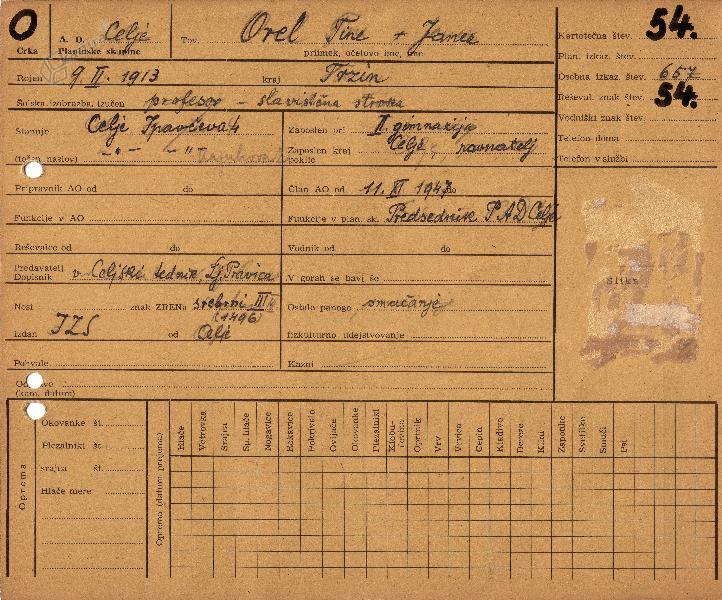 O
Črka
A. O. Celje
Planinske skupine
Tov. Orel Tine + Janez
priimek, očetovo ime, ime
Kartotečna štev. 54.
Plan. izkaz. štev.
Osebna izkaz. štev. 657
Reševal. znak štev. 54.
Vodniški znak štev.
Telefon doma
Telefon v službi
Rojen 9. II. 1913 kraj Trzin
Šolska izobrazba, izučen profesor – slavistična stroka
Stanuje Celje Ipavčeva 4
(točen naslov)
Zaposlen pri II. gimnazija
Zaposlen kraj Celje, ravnatelj
poklic
Pripravnik AO od do
Član AO od 11. XI 1947 do
Funkcije v AO
Funkcije v plan. sk. Predsednik PAD Celje
Reševalec od do
Vodnik od do
Predavatelj
Dopisnik v Celjski tednik, Lj. Pravica
V gorah se bavi še
Nosi znak ZRENa srebrni III
(1496)
izdan IZS od Celje
Ostalo panogo smučanje
fizkulturno udejstvovanje
Pohvale
Kazni
(kam, datum)
slika
Oprema
Okovanke št.
Plezalniki št.
srajna št.
Hlače mere
Oprema (datum prejema)
Hlače
Vetrovka
Srajca
Sp. hlače
Nogavice
Rokavice
Pokrivalo
Ovijače
Okovanke
Plezalniki
Klobučevina
Oprtnik
Vrv
Vrvica
Cepin
Kladivo
Dereze
Klini
Zaponke
Svetilka
Smuči
Psi